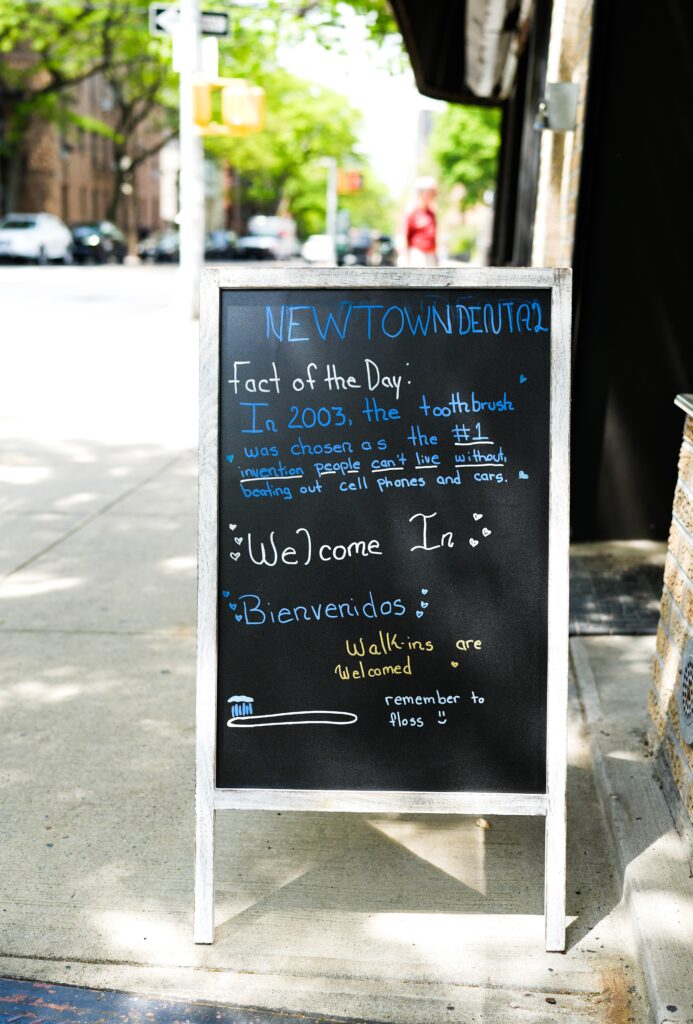 NEWTOWN DENTAL
Fact of the Day:
In 2003, the toothbrush
was chosen as the #1
invention people can't live without,
beating out cell phones and cars.
Welcome In
Bienvenidos
Walk-ins are
Welcomed
remember to
floss